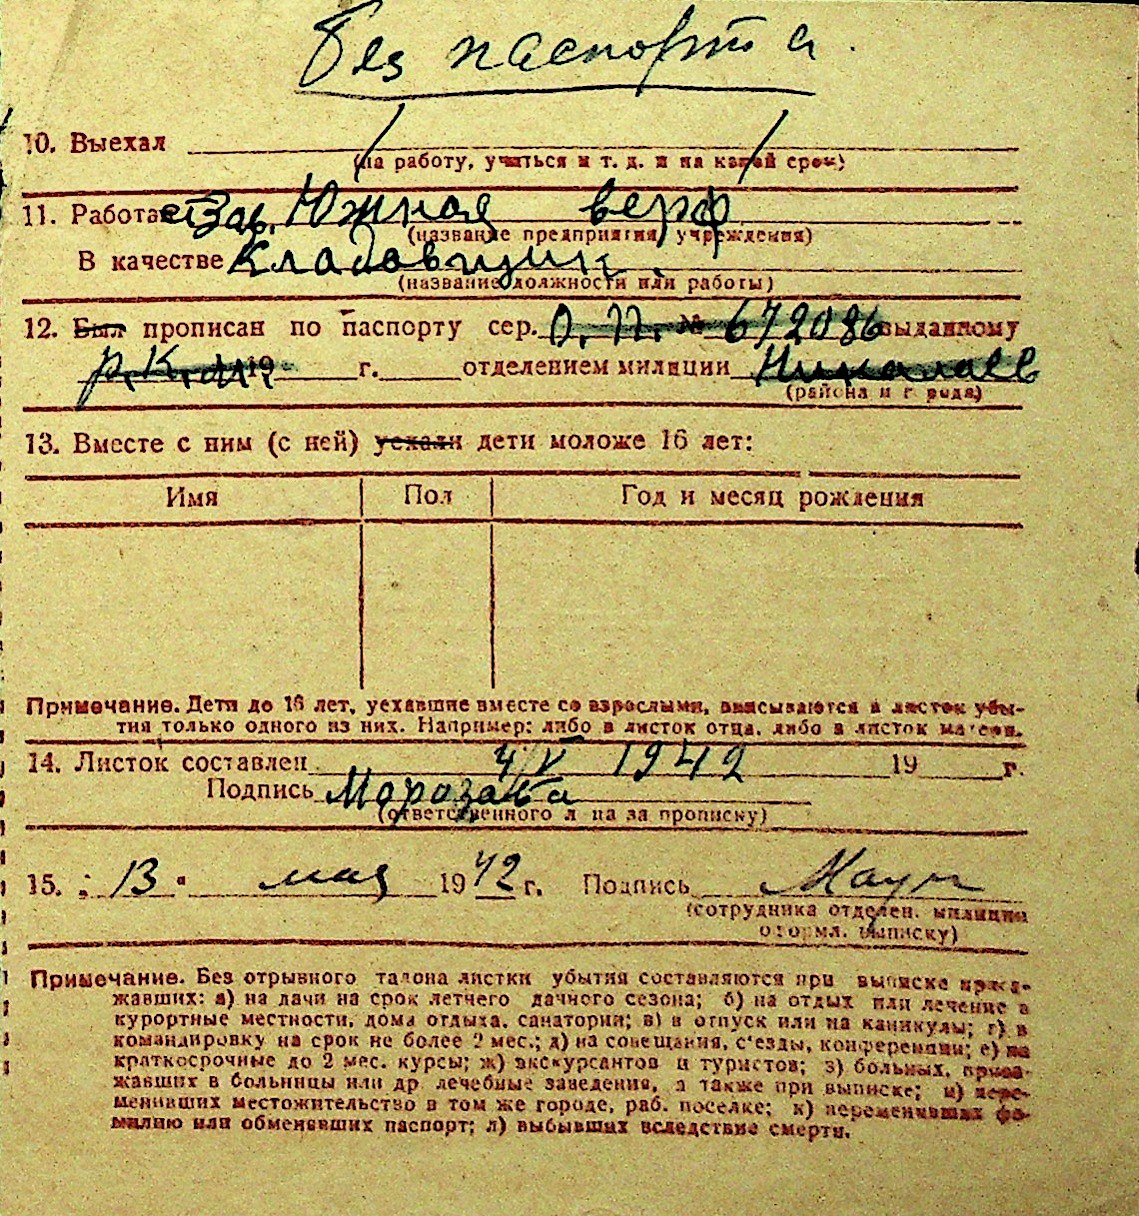 Без паспорта.
10. Выехал
(на работу, учиться и т. д. и на какой срок)
11. Работает Зав. Южная верф
(название предприятия, учреждения)
В качестве Кладовщик
(название должности или работы)
12. Был прописан по паспорту сер. О. П. № 672086 выданному
Р.К.М. 19 г. отделением милиции Николаев
(района и города)
13. Вместе с ним (с ней) уехали дети моложе 16 лет:
Имя Пол Год и месяц рождения
Примечание. Дети до 16 лет, уехавшие вместе со взрослыми, вписываются в листок убы-
тия только одного из них. Например: либо в листок отца, либо в листок матери.
14. Листок составлен 4/V 1942 19 г.
Подпись Морозова
(ответственного лица за прописку)
15. „13" мая 1942 г. Подпись
(сотрудника отделен. милиции
оформл. выписку)
Примечание. Без отрывного талона листки убытия составляются при выписке приез-
жавших: а) на дачи на срок летнего дачного сезона; б) на отдых или лечение в
курортные местности, дома отдыха, санатории; в) в отпуск или на каникулы; г) в
командировку на срок не более 2 мес.; д) на совещания, с'езды, конференции; е) на
краткосрочные до 2 мес. курсы; ж) экскурсантов и туристов; з) больных, приез-
жавших в больницы или др лечебные заведения, а также при выписке; и) пере-
менивших местожительство в том же городе, раб. поселке; к) переменивших фа-
милию или обменявших паспорт; л) выбывших вследствие смерти.